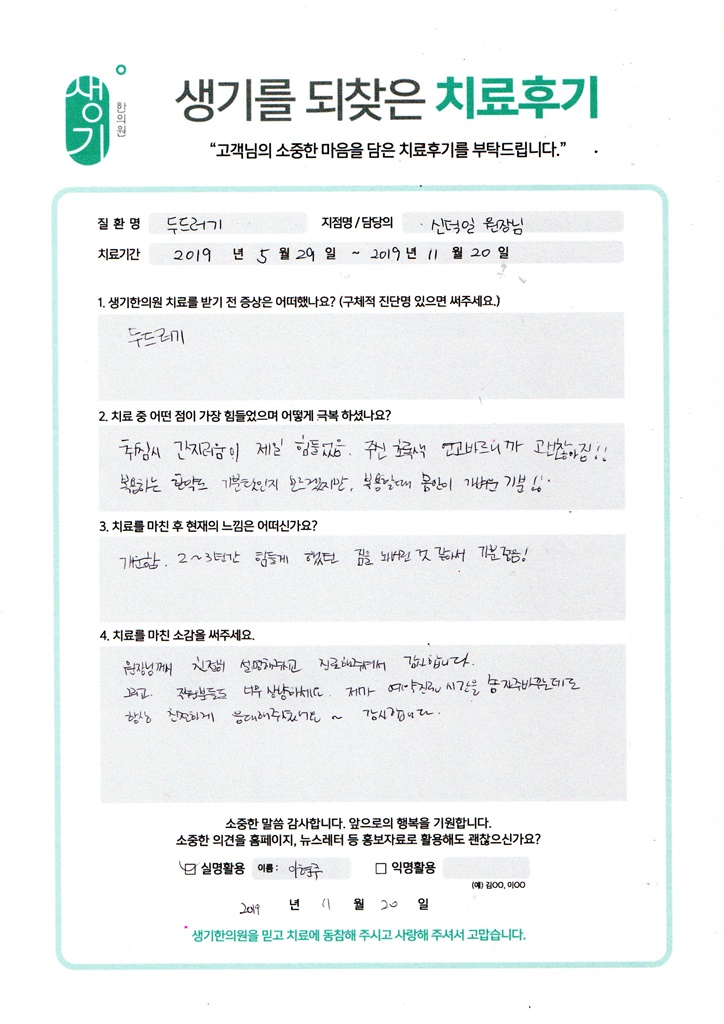 생기
한의원
생기를 되찾은 치료후기
“고객님의 소중한 마음을 담은 치료후기를 부탁드립니다.”
질 환 명 두드러기 지점명 / 담당의 신덕일 원장님
치료기간 2019 년 5 월 29 일 ~ 2019 년 11 월 20 일
1. 생기한의원 치료를 받기 전 증상은 어떠했나요? (구체적 진단명 있으면 써주세요.)
두드러기
2. 치료 중 어떤 점이 가장 힘들었으며 어떻게 극복 하셨나요?
취침시 간지러움이 제일 힘들었음. 주신 초록색 연고바르니까 괜찮아짐!!
복용하는 한약도 기분탓인지 모르겠지만, 복용할때 몸안이 가벼운 기분!!
3. 치료를 마친 후 현재의 느낌은 어떠신가요?
개운함. 2~3년간 힘들게 했던 짐을 놔버린 것 같아서 기분좋음!
4. 치료를 마친 소감을 써주세요.
원장님께서 친절히 설명해주시고 진료해주셔서 감사합니다.
그리고 직원분들도 너무 상냥하세요. 제가 예약진료 시간을 자주바꾸는데도
항상 친절하게 응대해주셨어요 ~ 감사합니다.
소중한 말씀 감사합니다. 앞으로의 행복을 기원합니다.
소중한 의견을 홈페이지, 뉴스레터 등 홍보자료로 활용해도 괜찮으신가요?
실명활용 이름 : 이현주 익명활용
(예) 김OO, 이OO
2019 년 11 월 20 일
생기한의원을 믿고 치료에 동참해 주시고 사랑해 주셔서 고맙습니다.